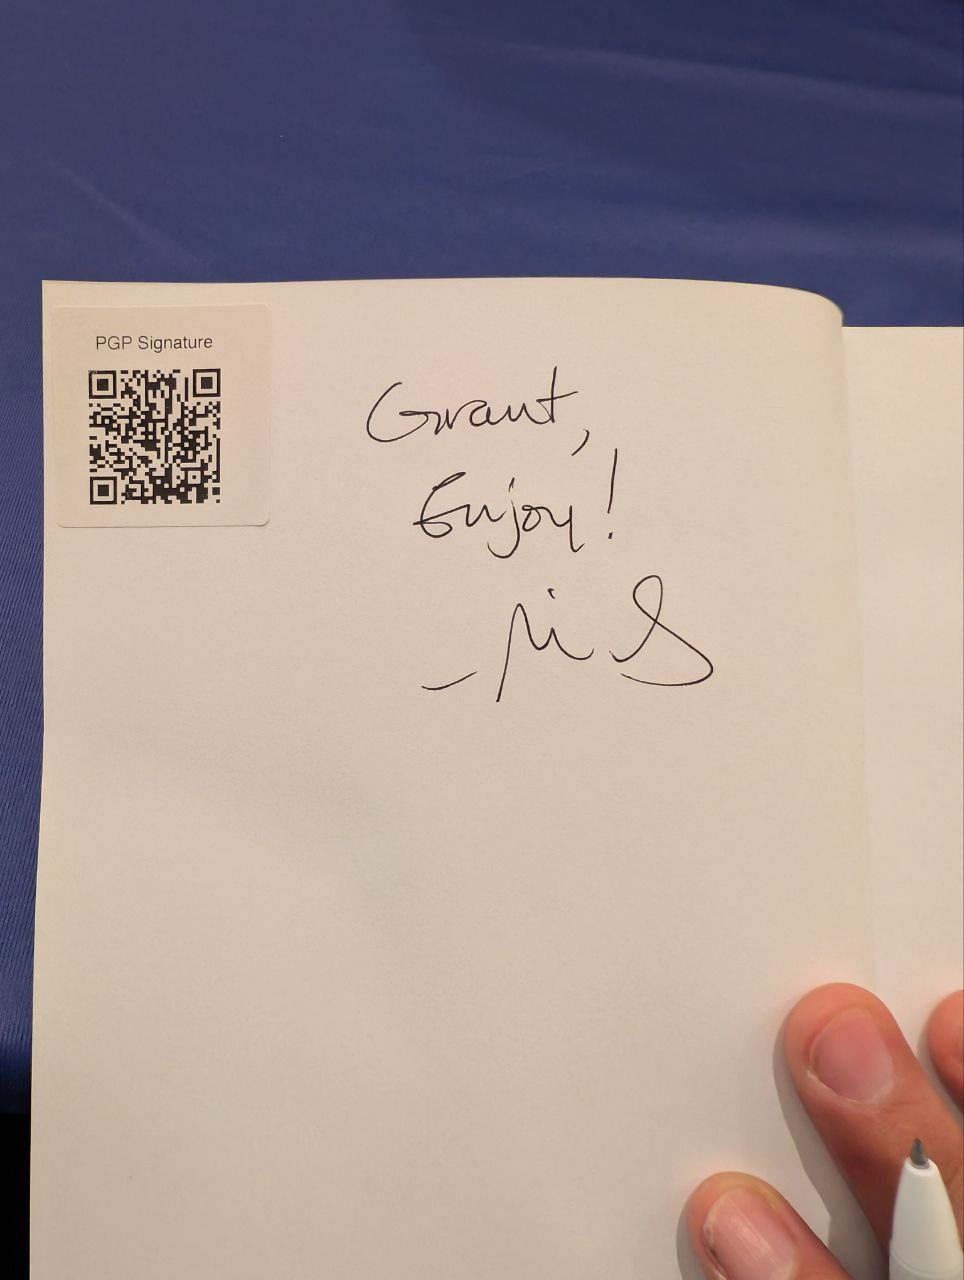 PGP Signature
Grant,
Enjoy!